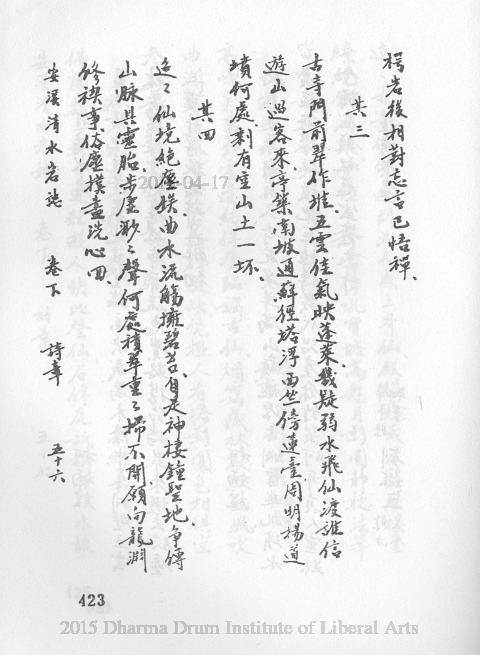 樗岩後相對志言已悟禪、
其三
古寺門前翠作堆、五雲佳氣映蓬萊、幾疑弱水飛仙渡、誰信
遊山過客來、亭築南坡通蘚徑、塔浮西竺傍蓮臺、周明楊道
墳何處、剩有空山土一坏、
其四
迢々仙境絕塵埃、曲水流觴擁碧苔、自是神棲鐘聖地、爭傳
山脉具靈胎、步虛渺々聲何處、積翠重々掃不開、願向龍淵
修禊事、俗塵撲盡洗心回、
安溪清水岩誌 卷下 詩章 五十六
423
2015-04-17
2015 Dharma Drum Institute of Liberal Arts